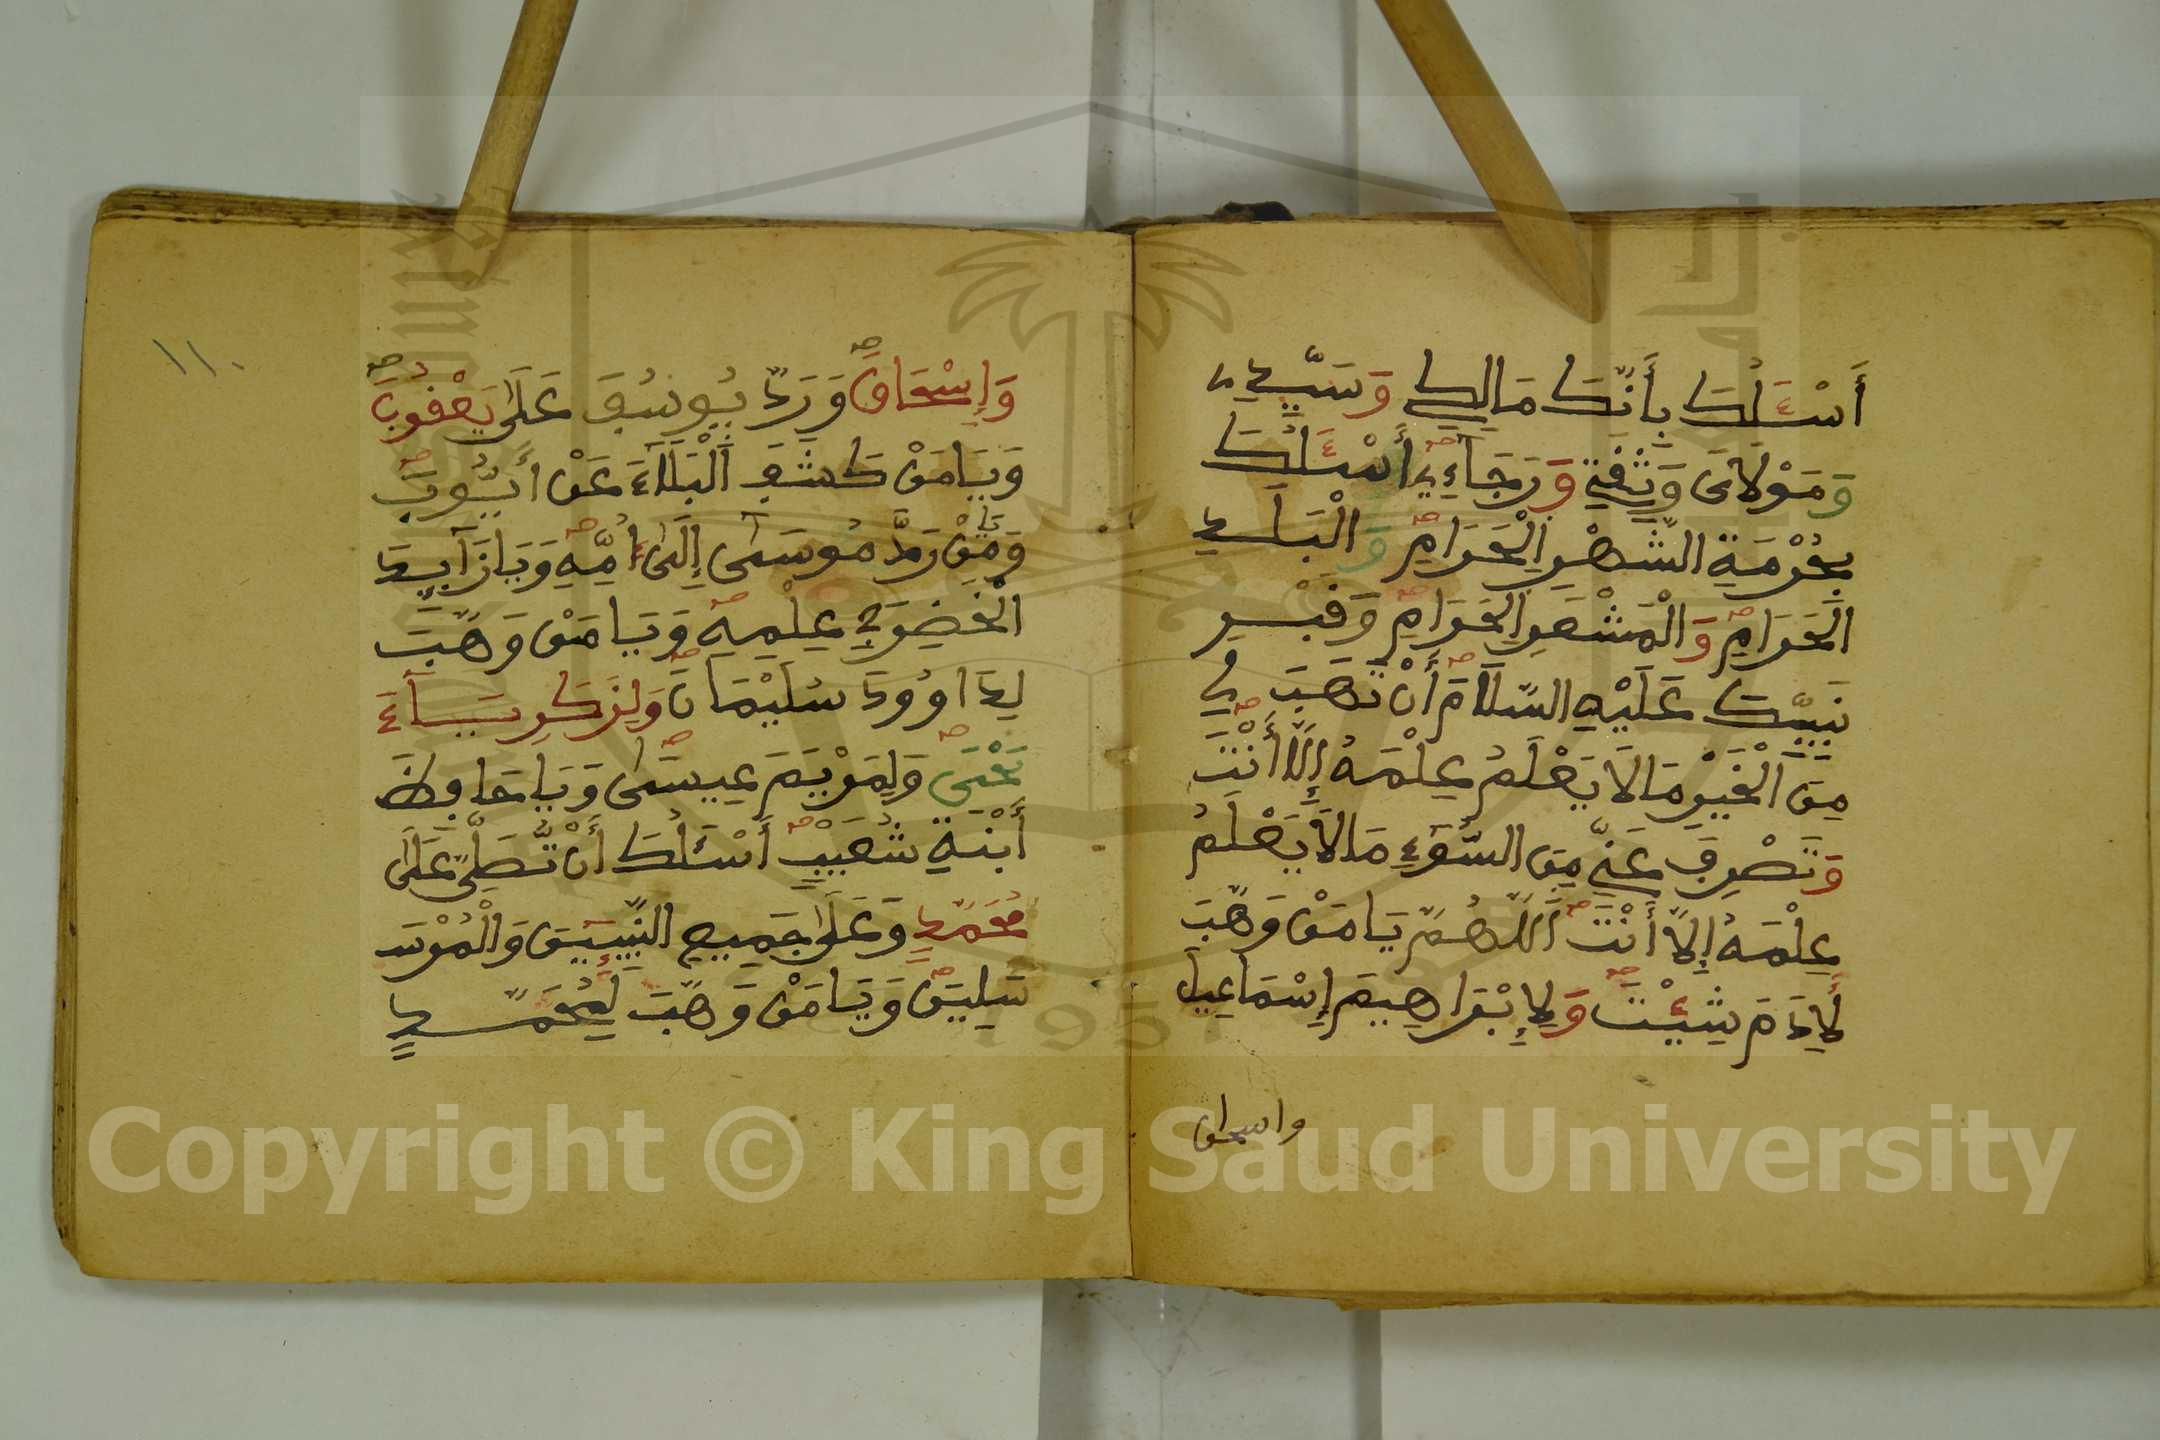 أَسْـَٔلُكَ بِأَنَّكَ مَالِكِي وَسَيِّدِي
وَمَوْلَايَ وَثِقَتِي وَرَجَاءِي أَسْـَٔلُكَ
بِحُرْمَةِ الشَّهْرِ الْحَرَامِ وَالْبَلَدِ
الْحَرَامِ وَالْمَشْعَرِ الْحَرَامِ وَقَبْرِ
نَبِيِّكَ عَلَيْهِ السَّلَامُ أَنْ تَهَبَ لِي
مِنَ الْخَيْرِ مَا لَا يَعْلَمُ عِلْمَهُ إِلَّا أَنْتَ
وَتَصْرِفَ عَنِّي مِنَ السُّوءِ مَا لَا يَعْلَمُ
عِلْمَهُ إِلَّا أَنْتَ اَللَّهُمَّ يَا مَنْ وَهَبَ
لِأَدَمَ شِيْتَ وَلِإِبْرَاهِيمَ إِسْمَاعِيلَ
واسحاق
١١٠
وَإِسْحَاقَ وَرَدَّ يُوسُفَ عَلَى يَعْقُوبَ
وَيَا مَنْ كَشَفَ الْبَلَاءَ عَنْ أَيُّوبَ
وَيَا مَنْ رَدَّ مُوسَى إِلَى أُمِّهِ وَيَا زَايِدَ
الْخَضِرِ فِي عِلْمِهِ وَيَا مَنْ وَهَبَ
لِدَاوُودَ سُلَيْمَانَ وَلِزَكَرِيَّاءَ
يَحْيَى وَلِمَرْيَمَ عِيسَى وَيَا حَافِظَ
ابْنَةِ شُعَيْبٍ أَسْـَٔلُكَ أَنْ تُصَلِّيَ عَلَى
مُحَمَّدٍ وَعَلَى جَمِيعِ النَّبِيِّينَ وَالْمُرْسَـ
سَلِينَ وَيَا مَنْ وَهَبَ لِمُحَمَّدٍ
1957
Copyright © King Saud University